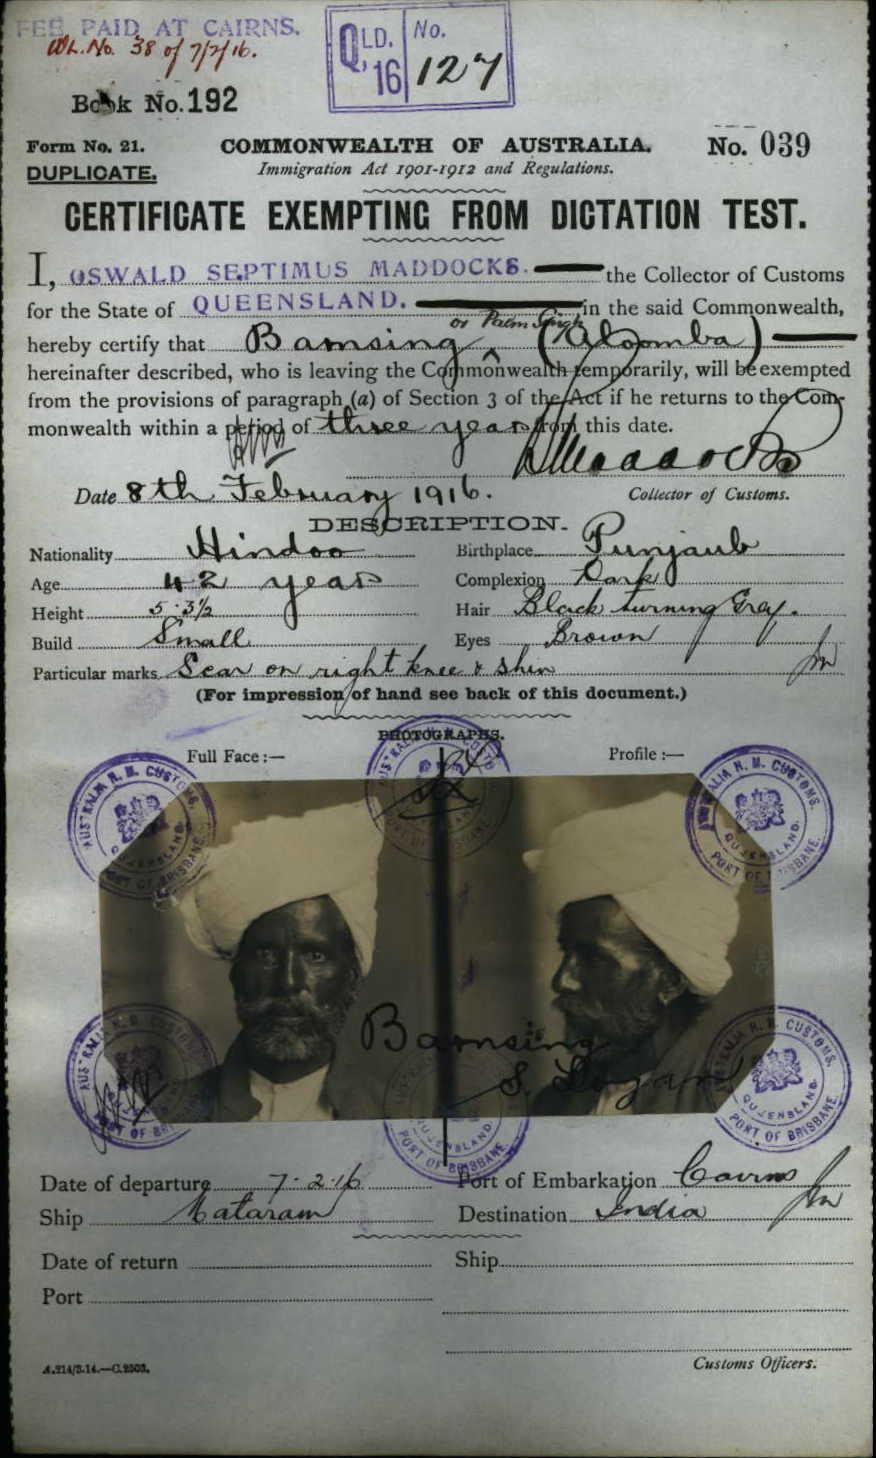 FEE PAID AT CAIRNS.
No. 38 of 7/2/16.
QLD. 16 No. 127
Book No. 192
Form No. 21.
COMMONWEALTH OF AUSTRALIA.
No. 039
DUPLICATE.
Immigration Act 1901-1912 and Regulations.
CERTIFICATE EXEMPTING FROM DICTATION TEST.
I, OSWALD SEPTIMUS MADDOCKS. the Collector of Customs
for the State of QUEENSLAND. in the said Commonwealth,
or Palm Singh
hereby certify that Bamsing (Aloomba)
hereinafter described, who is leaving the Commonwealth temporarily, will be exempted
from the provisions of paragraph (a) of Section 3 of the Act if he returns to the Com-
monwealth within a period of three years from this date.
Maddocks
Date 8th February 1916.
Collector of Customs.
DESCRIPTION.
Nationality Hindoo Birthplace Punjaub
Age 42 years Complexion Dark
Height 5. 3½ Hair Black turning Grey.
Build Small Eyes Brown
Particular marks Scar on right knee & shin
(For impression of hand see back of this document.)
PHOTOGRAPHS.
Full Face :— Profile :—
AUSTRALIA H. M. CUSTOMS. QUEENSLAND. PORT OF BRISBANE.
AUSTRALIA H. M. CUSTOMS. QUEENSLAND. PORT OF BRISBANE.
AUSTRALIA H. M. CUSTOMS. QUEENSLAND. PORT OF BRISBANE.
Bamsing
S. Logan
AUSTRALIA H. M. CUSTOMS. QUEENSLAND. PORT OF BRISBANE.
QUEENSLAND. PORT OF BRISBANE.
AUSTRALIA H. M. CUSTOMS. QUEENSLAND. PORT OF BRISBANE.
Date of departure 7. 2. 16 Port of Embarkation Cairns
Ship Mataram Destination India
Date of return Ship
Port
A.214/3.14.—C.2503.
Customs Officers.